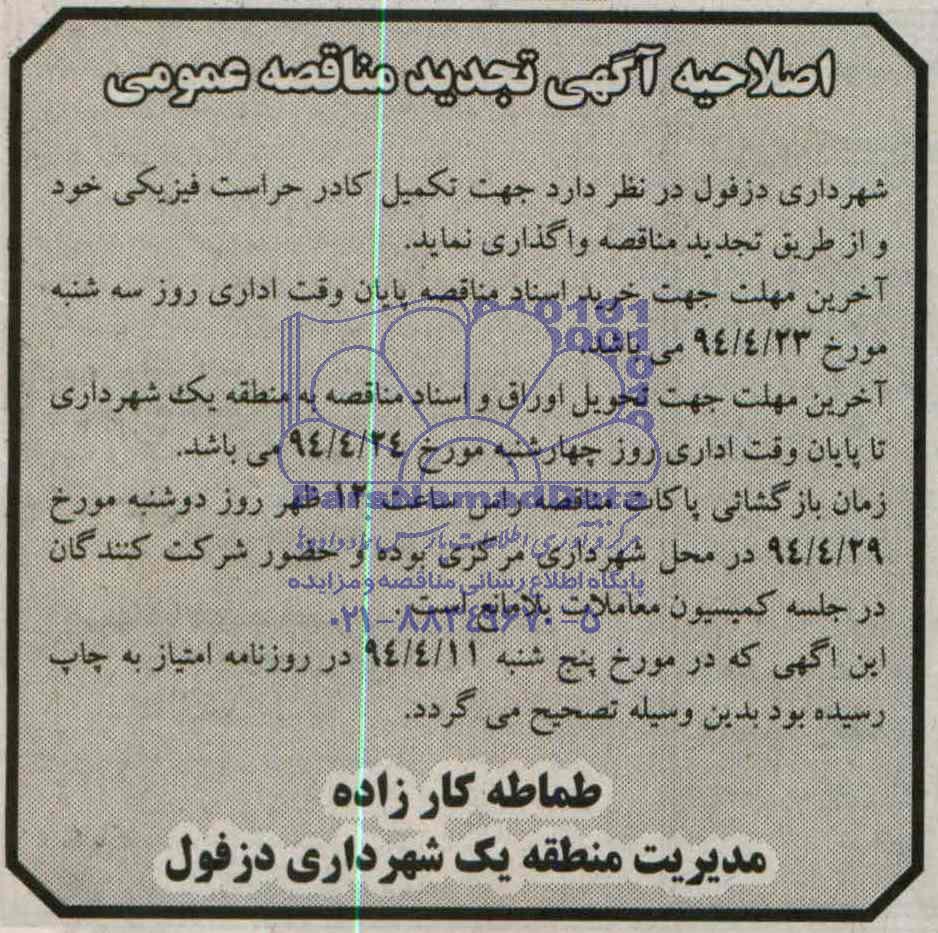 اصلاحیه آگهی تجدید مناقصه عمومی
شهرداری دزفول در نظر دارد جهت تکمیل کادر حراست فیزیکی خود
و از طریق تجدید مناقصه واگذاری نماید.
آخرین مهلت جهت خرید اسناد مناقصه پایان وقت اداری روز سه شنبه
مورخ ۹٤/٤/۲۳ می باشد.
آخرین مهلت جهت تحویل اوراق و اسناد مناقصه به منطقه یک شهرداری
تا پایان وقت اداری روز چهارشنبه مورخ ۹٤/٤/۲٤ می باشد.
زمان بازگشائی پاکات مناقصه راس ساعت ۱۲ ظهر روز دوشنبه مورخ
۹٤/٤/۲۹ در محل شهرداری مرکزی بوده و حضور شرکت کنندگان
در جلسه کمیسیون معاملات بلامانع است.
این اگهی که در مورخ پنج شنبه ۹٤/٤/۱۱ در روزنامه امتیاز به چاپ
رسیده بود بدین وسیله تصحیح می گردد.
طماطه کار زاده
مدیریت منطقه یک شهرداری دزفول
ParsNamadData
پایگاه اطلاع رسانی مناقصه و مزایده
۰۲۱-۸۸۳۴۹۶۷۰-۵